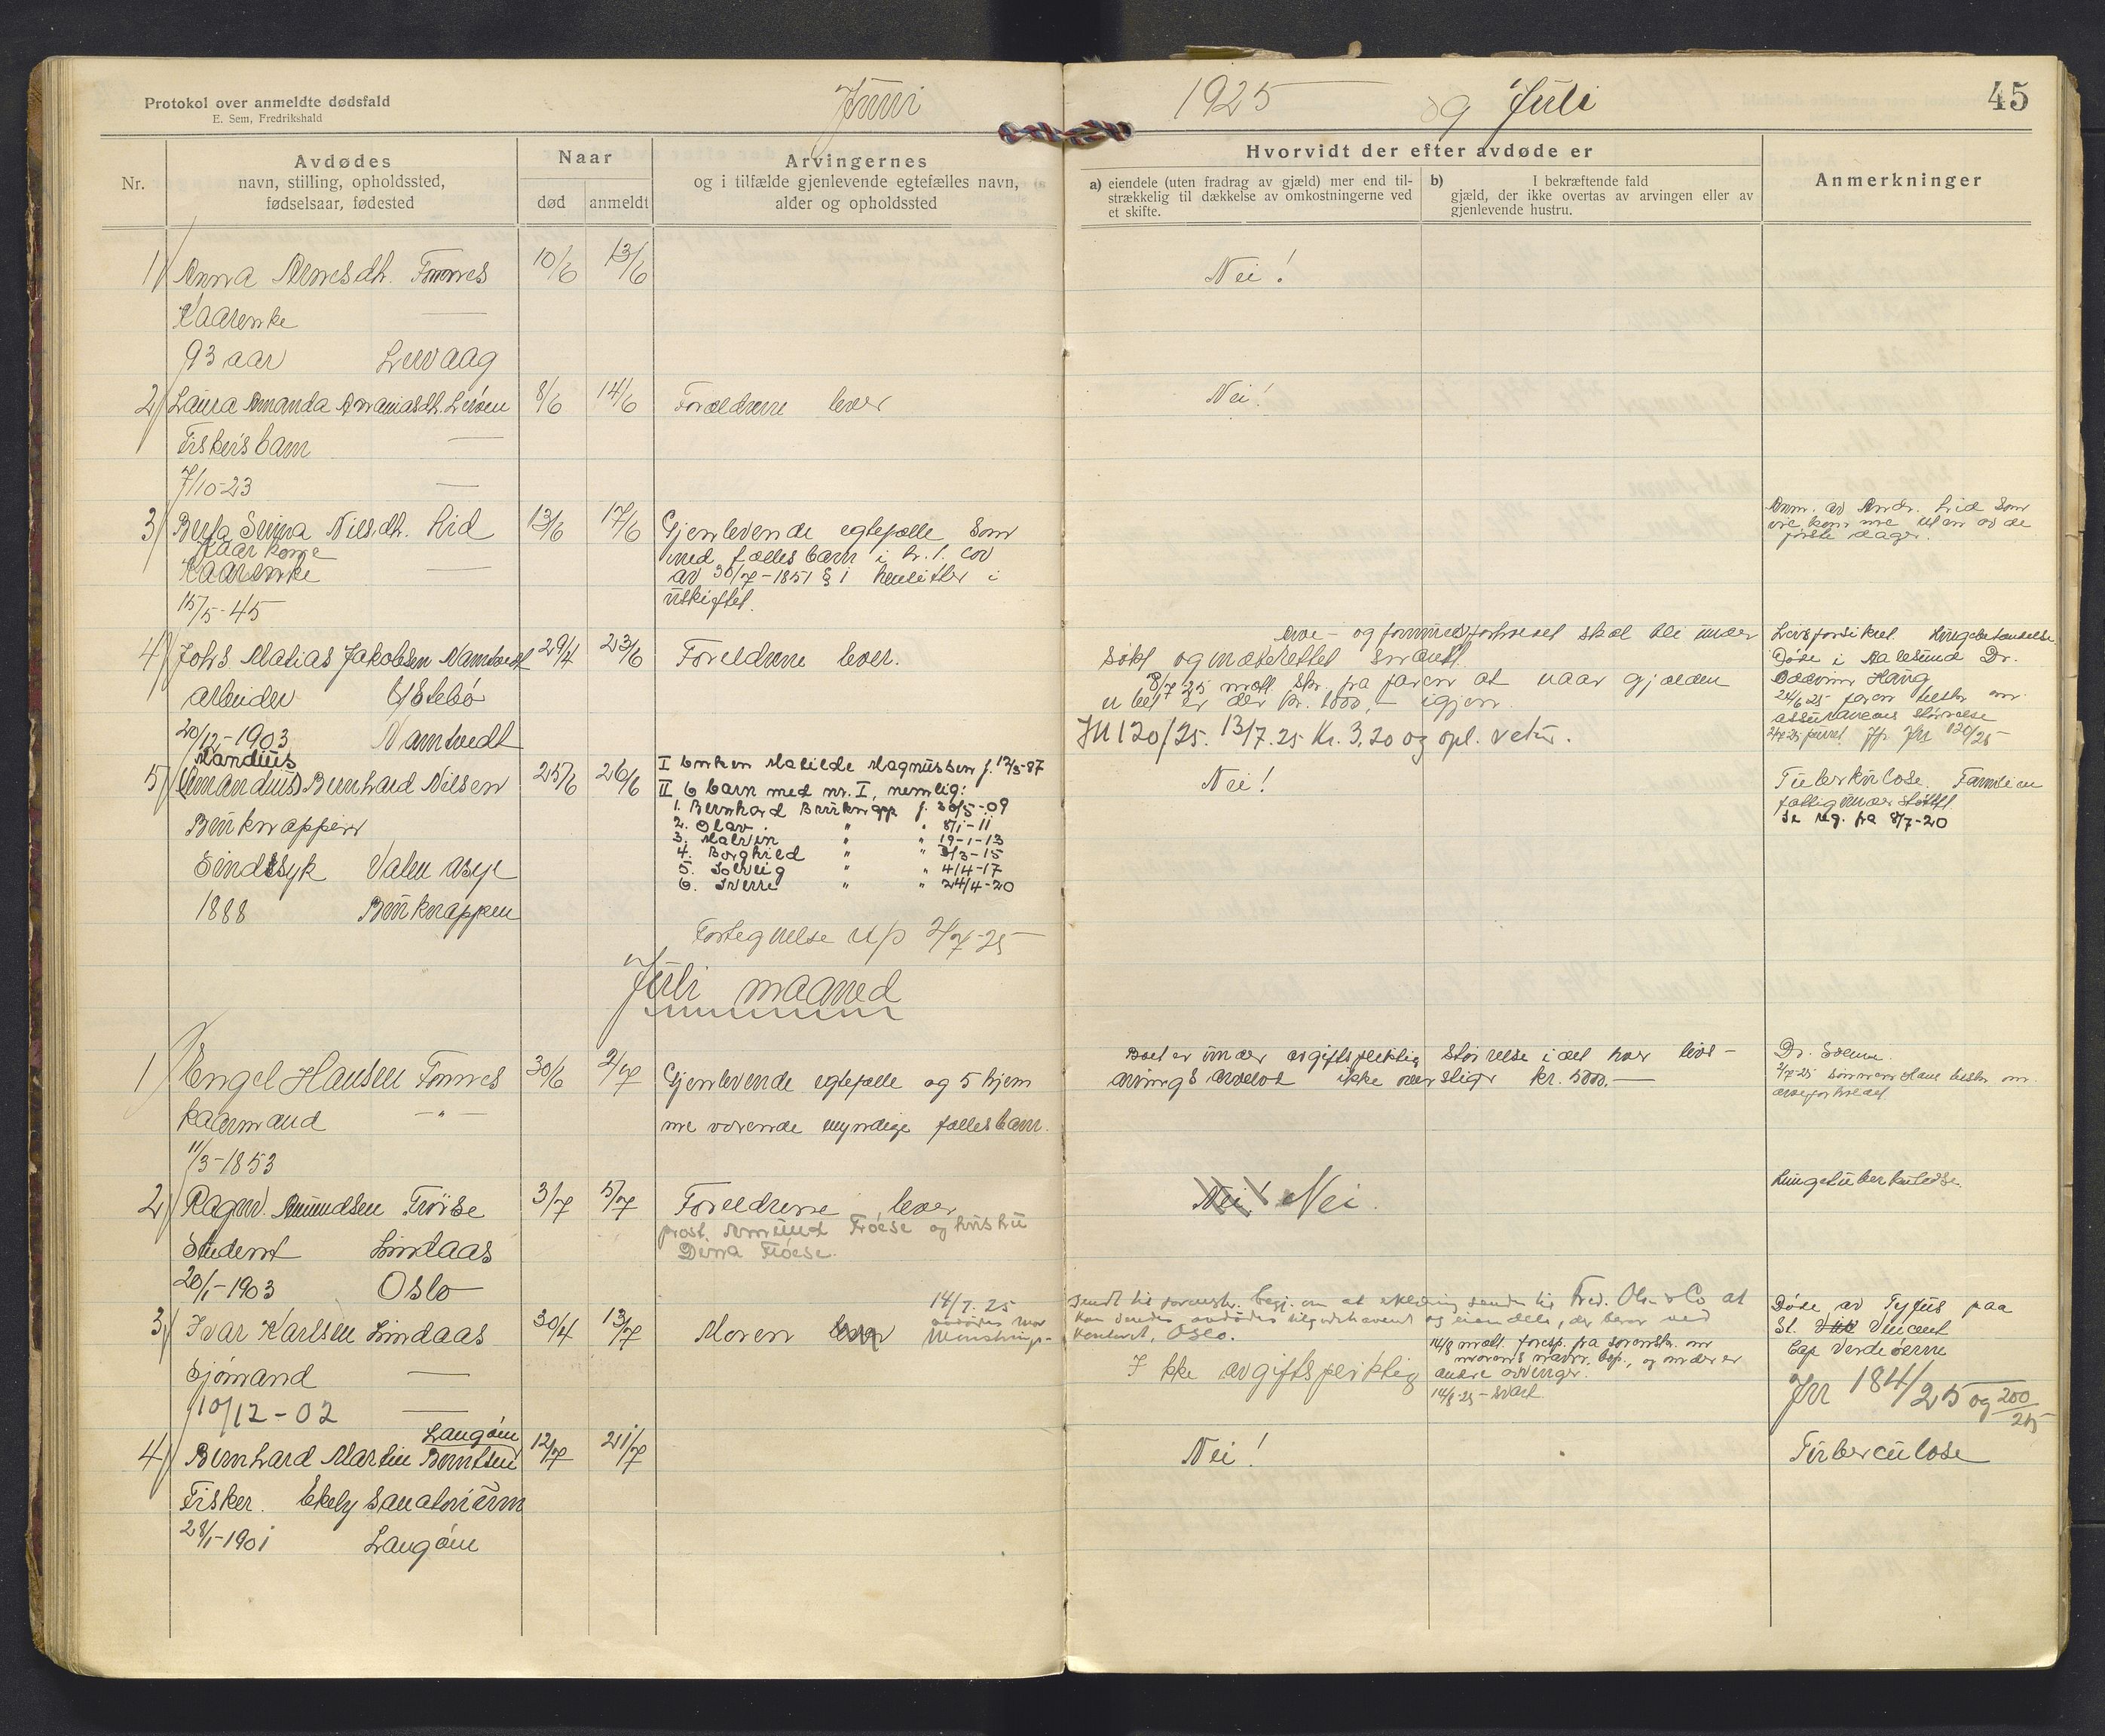 Protokol over anmeldte dødsfald
E. Sem, Fredrikshald
Juni
1925 og Juli
45
Nr.
Avdødes
navn, stilling, opholdssted,
fødselsaar, fødested
Naar
død
anmeldt
Arvingernes
og i tilfælde gjenlevende egtefælles navn,
alder og opholdssted
Hvorvidt der efter avdøde er
a) eiendele (uten fradrag av gjæld) mer end til-
strækkelig til dækkelse av omkostningerne ved
et skifte.
b) I bekræftende fald
gjæld, der ikke overtas av arvingen eller av
gjenlevende hustru.
Anmerkninger
1 Anna Arnesdh. Fonnes 10/6 13/6 Nei!
Kaarenke —
93 aar
2 Laura Amanda Ananiasdh. 8/6 14/6 Forældrene lever Nei!
Fiskers barn —
7/10-23 —
3 Nilsdh. Lid 13/6 17/6 Gjenlevende egtefælle som
Kaarkone
med fælles barn i h.t. lov
Kaarenke —
av 30/7-1851 § 1 hensitter i
uskiftet.
15/5-45
Anm. av Andr. Lid som
første dager.
4 Johs Matias Jakobsen Namtvedt 29/4 23/6 Foreldrene lever.
arbeider Ystebö
20/12-1903 Namtvedt
Arve- og formuesforholdet skal bli under
søkt og
8/7 25 mott. skr. fra faren at naar gjælden
er bet er der kr. 1000,- igjen.
JN 120/25. 13/7.25 Kr. 3,20 og opl. retur.
Livsforsikret.
Døde i Aalesund Dr.
Haug
24/6 25 faren
assurancens størrelse
Jfr JN 120/25
Mandius
5 (Amandius) Bernhard Nilsen 25/6 26/6 I Enken Matilde Magnussen f. 12/3-87 Nei!
Bruknappen
II 6 barn med nr. I, nemlig:
1. Bernhard Bruknapp f. 30/5-09
2. Olav " " 8/1-11
3. Malvin " " 19-1-13
4. Borghild " " 3/3-15
5. Solveig " " 4/4-17
6. Sverre " " 24/4-20
Sindssyk Valen asyl
1888 Bruknappen
Tuberkulose. Familien
fattigunderstøttet
Se reg. fra 8/7-20
Fortegnelse 2/7-25
Juli maaned
1 Engel Hansen Fonnes 30/6 2/7 Gjenlevende egtefælle og 5 hjem
Kaarmand — " —
me værende myndige fælles barn.
11/3-1853
Boet er under avgiftspliktig størrelse idet hver livs-
arvings arvelod ikke overstiger kr. 5000.—
Dr.
2/7-25 sønnen Hans
arveforholdet
2 Ragnv. Amundsen Frøise 3/7 5/7 Foreldrene lever Nei! Nei.
prost. Amund Frøese og hustru
Frøese.
Student Lindaas
20/1-1903 Oslo
Lungetuberkulose.
3 Ivar Karlsen Lindaas 30/4 13/7 Moren lever
14/7. 25
avdødes mor
Sjömand —
10/12-02 —
Sendt til sorenskr. begj. om at erklæring sendes til Fred. Olsen & Co at
kan sendes avdødes tilgodehavende og eiendele, der beror ved
kontoret, Oslo.
Ikke avgiftspliktig
14/8 mott. foresp. fra sorenskr. om
morens navn. bop., og om der er
andre arvinger.
14/8-25 - svart
Døde av Tyfus paa
St. Vincent
Cap Verdeøerne
Jnr 184/25 og 200/25
Langöen
4 Bernhard Martin Berntsen 12/7 21/7 Nei! Tuberculose
Fisker. Ekely Sanatorium
28/1-1901 Langöen